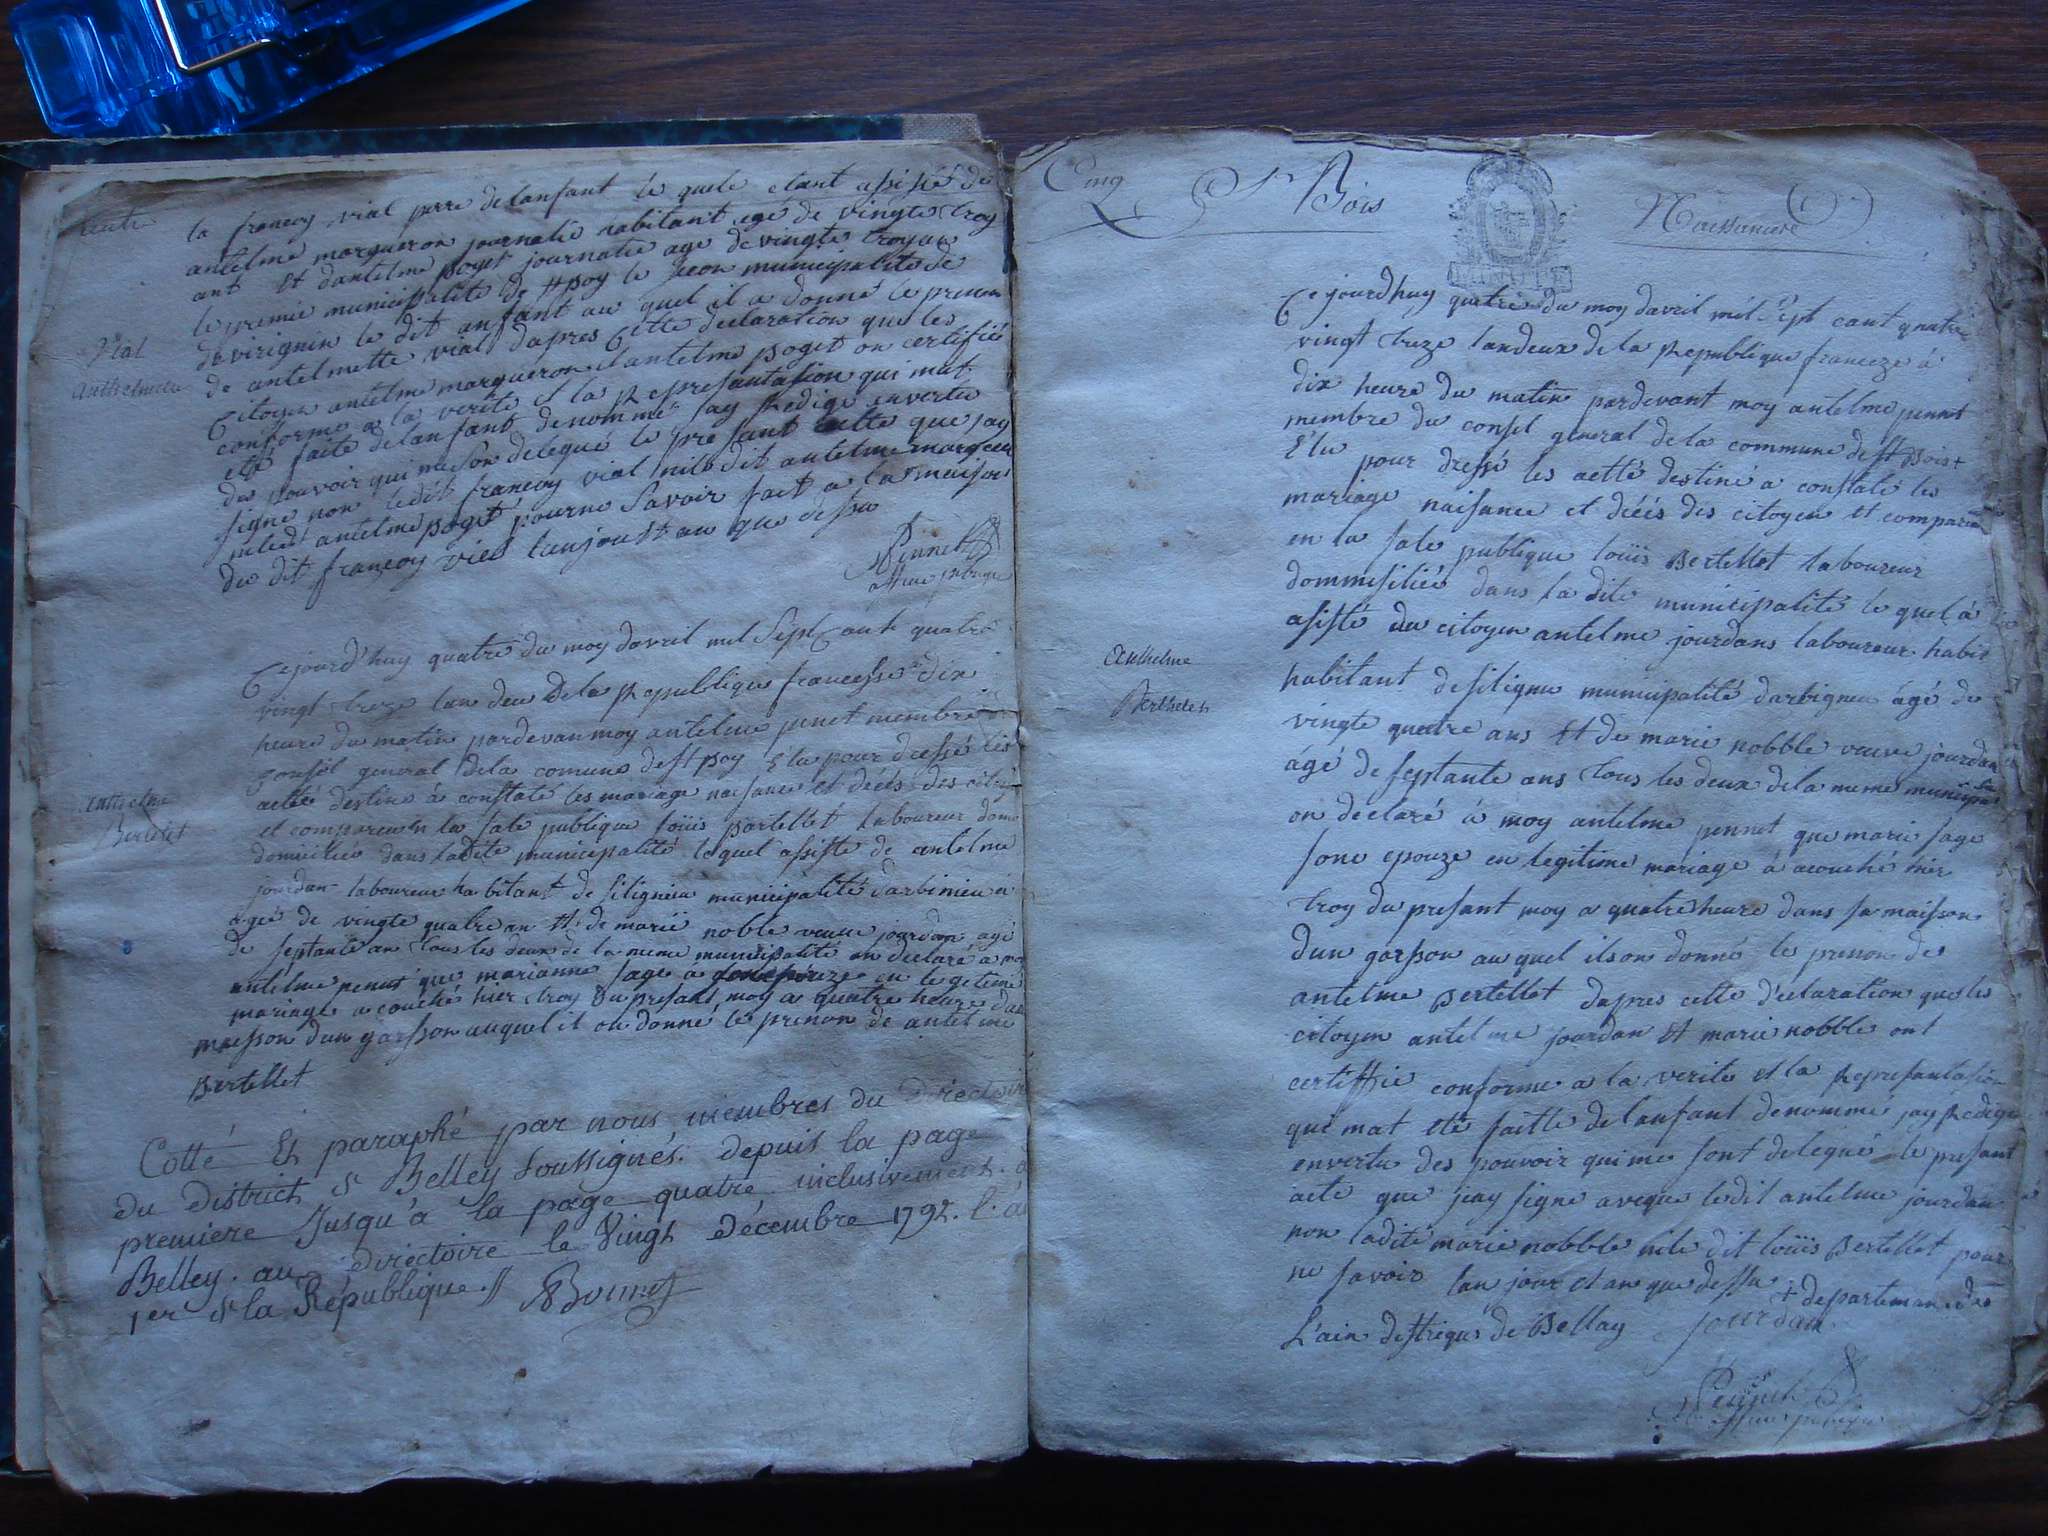 la francoy vial perre delanfant le quele etant assisté de
antelme marqueron journalie habitant egé de vingte troy
ant Et dantelme poget journalie age de vingte troy an
le premie municipalité de St poy le municipalité de
de virignin le dit anfant au quel il a donné le prenon
de antelmette vial dapres Cette declaration que les
Citoyen antelme marqueron antelme poget on certifié
conforme a la verité et la Representation qui mat
eté faite delanfant denommé jay Redige envertu
du pouvoir qui me son delegué le presant acte que jay
signe non ledit francoy vial nile dit antelme marqueron
niledit antelme poget pourne Savoir fait a la maison
du dit françoy viel lanjour Et an que dessu
Vial
Anthelmette
Pennet
Cejourd'huy quatre du moy davril mil Sept Cant quatre
vingt treze lan deu De la Republique francesse a dix
heure du matin pardevan moy antelme penet membre du
Consel general dela comune de St poy Elu pour dressé les
actte destine à constaté les mariage naisance et décés des citoyen
et comparu en la sale publique Loüis partellet laboureur dom
domicilié dans ladite municipalité lequel assiste de antelme
jourdan laboureur habitant de silignieu municipalité darbinieu
agée de vingte quatre an Et de marië noble veuve jourdan agé
de septante an tous les deux de la meme municipalité on declaré a moy
antelme penet que marianne sage a son epouze en legetime
mariage a couché hier troy Du presant moy a quatre heure dans
maisson dun garsson auquel il on donné le prenon de antelme
Bertellet
Anthelme
Bertelet
Cotté Et paraphé par nous membres du Directoire
du District de Belley Soussignés. depuis la page
premiere Jusqu'à la page quatre inclusivement. à
Belley. au directoire le Vingt Décembre 1792. l'an
1er de la République.
Cinq
St Bois
Naissances
Ce jourdhuy quatre du moy davril mil Sept cant quatre
vingt treze landeux de la Republique franceze à
dix heure du matin pardevant moy antelme pennet
membre du consel general de la commune de St Bois +
Elu pour dressé les actté destiné a constaté les
mariage naisance et décés des citoyen Et comparu
en la sale publique loüis Bertellet laboureur
dommisilié dans la dite municipalité le quel à
assisté du citoyen antelme jourdans laboureur habit
habitant desilignu municipalité darbignieu ágé de
vingte quatre ans Et de marie nobble veuve jourdan
ágé de septante ans tous les deux de la meme municipa
on declaré à moy antelme pennet que marie sage
sone epouze en legitime mariage à acouché hier
troy du presant moy a quatre heure dans sa maisson
dun garsson au quel ilson donné le prenon de
antelme Bertellet dapres cette déclaration que les
citoyen antelme jourdan Et marie nobble ont
certiffie conforme a la verite et la Representasion
qui mat eté faitte de lanfant denommé jay Redige
envertu des pouvoir qui me sont delegué le presant
acte que jay signe aveque ledit antelme jourdan
non ladite marie nobble nile dit loüis Bertellet pour
ne savoir lan jour et an que dessu + departeman de
L'ain distrique de Bellay jourdan
Anthelme
Berthelet
Pennet